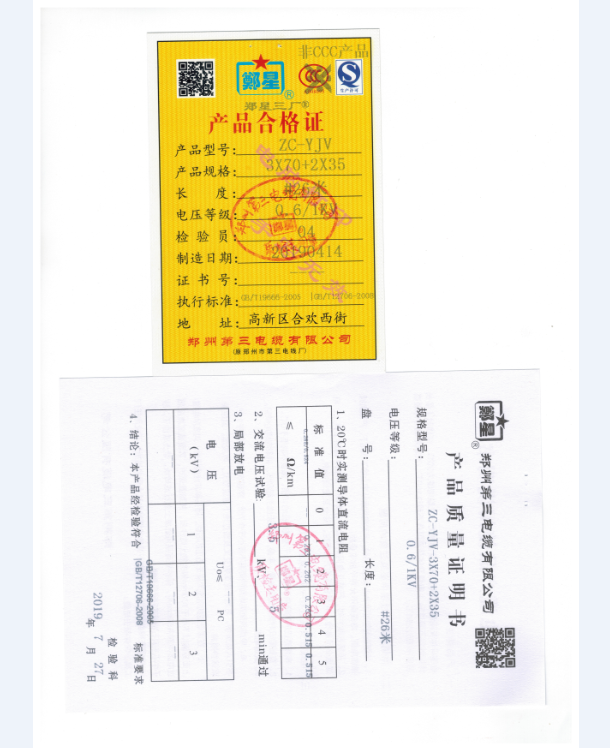 非CCC产品
鄭星®
生产许可
郑星三厂®
产品合格证
产品型号: ZC-YJV
产品规格: 3X70+2X35
长 度:
电压等级: 0.6/1KV
检 验 员: 04
制造日期: 20190414
证 书 号:
执行标准: GB/T19666-2005 GB/T12706-2008
地 址: 高新区合欢西街
郑州第三电缆有限公司
(原郑州市第三电缆厂)
鄭星® 郑州第三电缆有限公司
产品质量证明书
规格型号: ZC-YJV-3X70+2X35
电压等级: 0.6/1KV
盘 号: 长度: #26米
1、20℃时实测导体直流电阻
标 准 值 0 1 2 3 4 5
≤ Ω/km
2、交流电压试验: kV, 5 min通过
3、局部放电
电 压 (kV) U₀≤ PC
1 2 3
4、结论: 本产品经检验符合 GB/T19666-2005 GB/T12706-2008 标准要求
检 验 科
2019 年 7 月 27 日